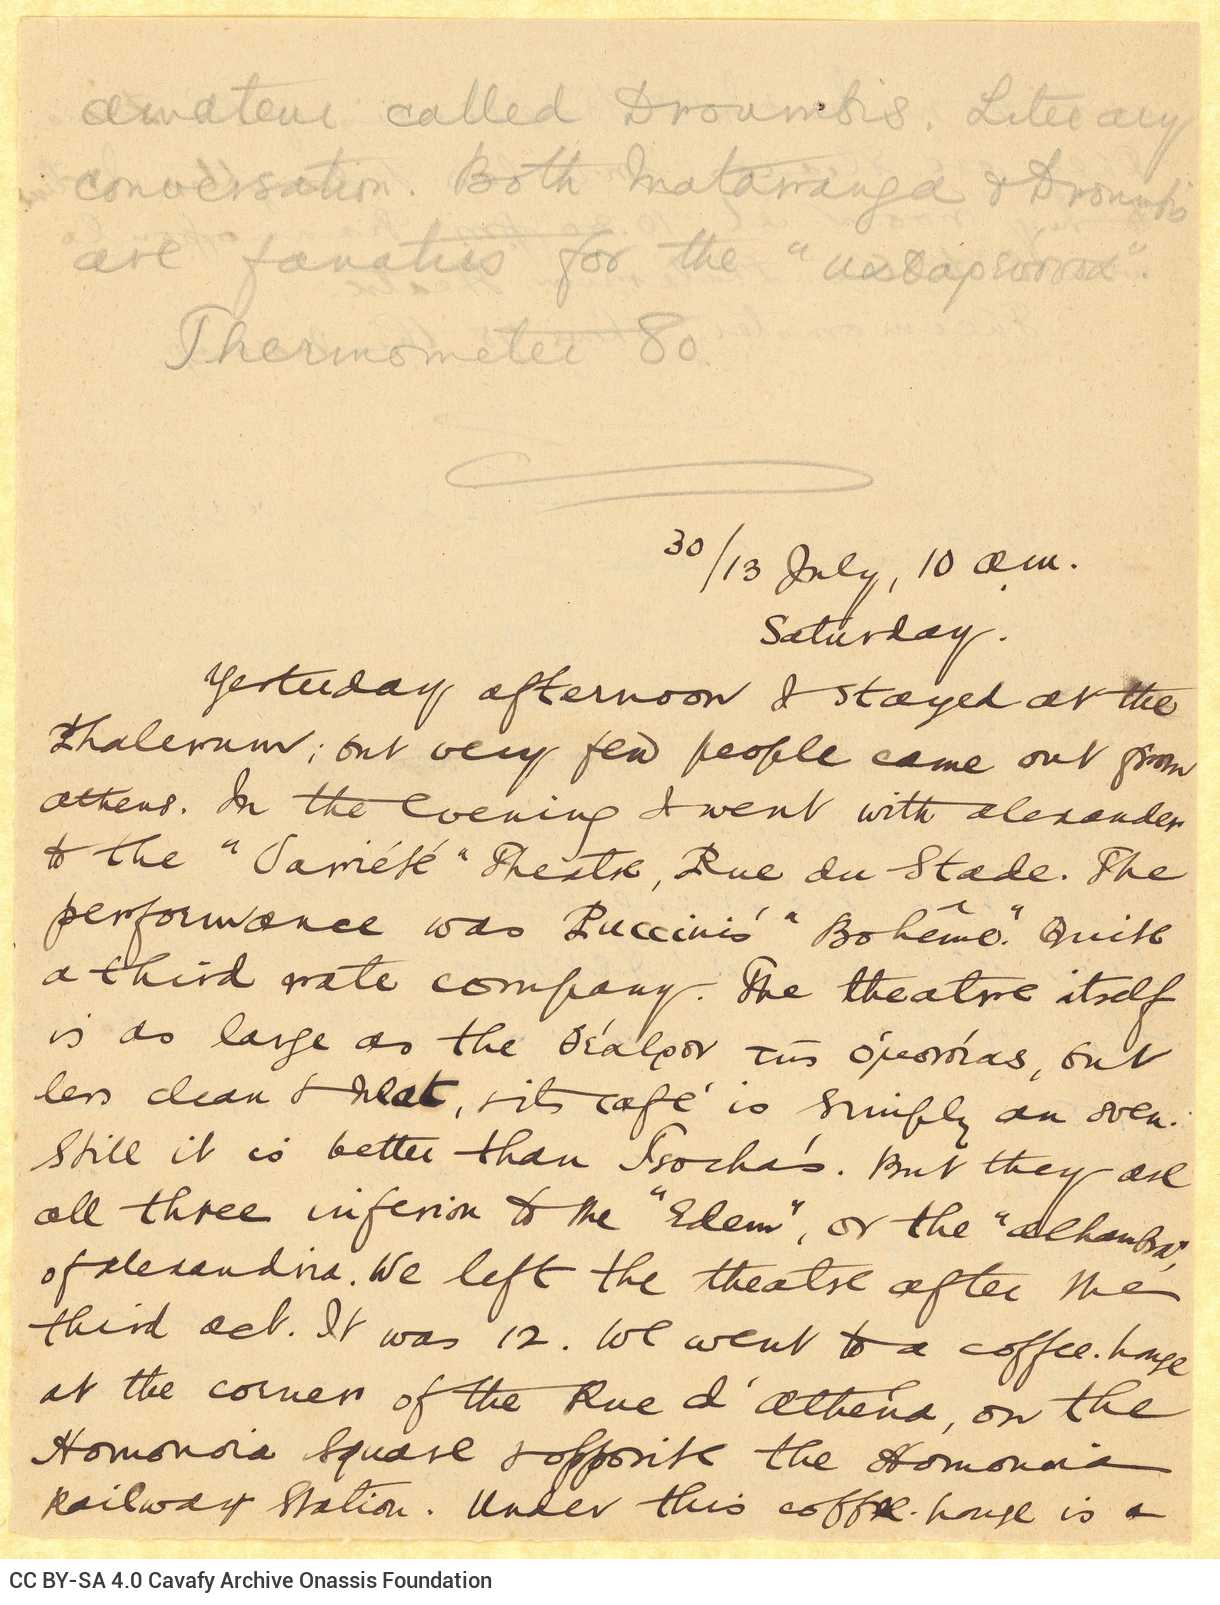 amateur called Droumbis. Literary
conversation. Both Matarranga & Droumbis
are fanatics for the "καθαρεύουσα".
Thermometer 80.
30/13 July, 10 a.m.
Saturday.
Yesterday afternoon I stayed at the
Phalerum; but very few people came out from
Athens. In the evening I went with Alexander
to the "Varriété" Theatre, Rue du Stade. The
performance was Puccini's "Bohême". Quite
a third rate company. The theatre itself
is as large as the θέατρον τῆς Ὁμονοίας, but
less clean & neat, & its café is simply an oven.
Still it is better than Tsocha's. But they are
all three inferior to the "Eden", or the "Alhambra",
of Alexandria. We left the theatre after the
third act. It was 12. We went to a coffee-house
at the corner of the Rue d'Athéna, on the
Homonoia Square & opposite the Homonoia
Railway Station. Under this coffee-house is a
CC BY-SA 4.0 Cavafy Archive Onassis Foundation